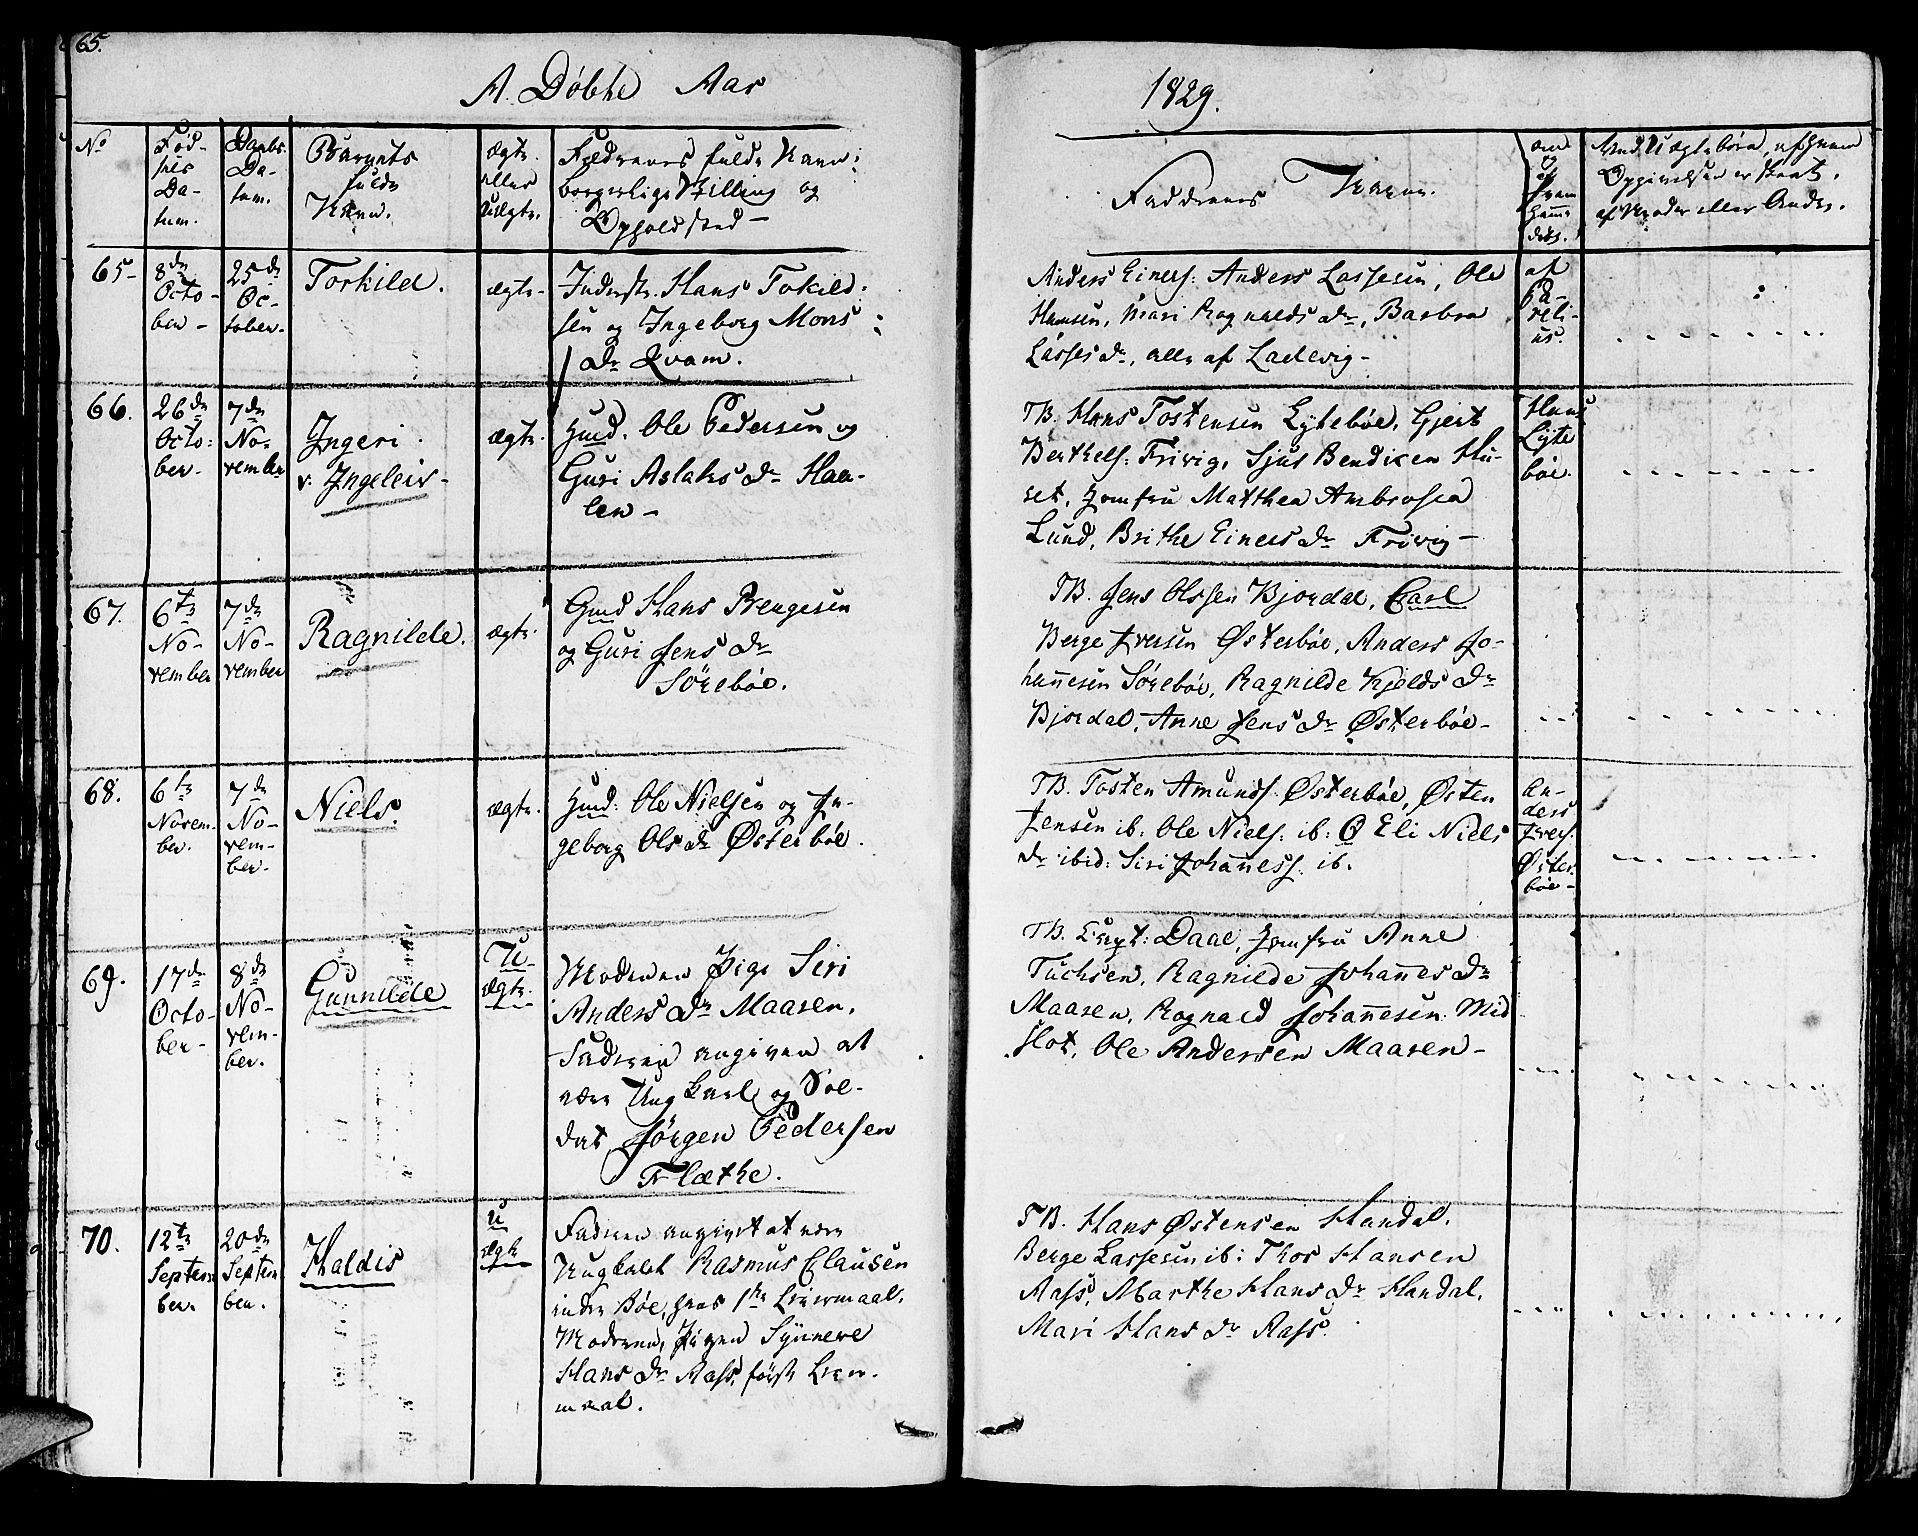 65.
A. Döbte Aar
1829.
No
Fød-
sels
Da-
tum.
Daabs
Da-
tum.
Barnets
fulde
Navn.
ægte.
eller
Uægte.
Forældrenes fulde Navn:
borgerlige Stilling og
Opholdsted –
Faddernes Navne.
om
og
af
hvem
hjemme
døbt.
Ved Uægte børn, af hvem
Opgivelsen er skeet,
af Moder eller Andre.
65-
8de
Octo-
ber -
25de
Oc-
tober.
Torkild.
ægte-
Inderste Hans Tokild:
sen og Ingeborg Mons:
Dr Qvam.
Anders Einers: Anders Lassesen, Ole
Hansen, Mari Rognalds dr, Barbra
Lasses dr, alle af Ladevig-
af
Pa-
reli-
us.
66.
26de
Octo:
ber-
7de
No-
vember
Ingeri
v. Ingeleiv-
ægte.
Gmd. Ole Pedersen og
Guri Aslaks dr Haa-
len -
TB. Hans Tostensen Lytebøe, Gjert
Berthels: Frivig, Sjus Bendixen Hu-
set, Jomfru Matthea Ambrosia
Lund, Brithe Einers dr Frivig-
Hans
Lyte
bøe.
67.
6te
No-
vember
7de
No-
vember
Ragnilde.
ægte.
Gmd Hans Bengesen
og Guri Jens dr
Sörebøe.
TB. Jens Olssen Bjordal, Carl
Berge Iversen Østerbøe, Anders Jo-
hannesen Sörebøe, Ragnilde Kjelds dr
Bjordal, Anne Jens dr Østerbøe-
68.
6te
Novem-
ber.
7de
No-
vem-
ber.
Niels.
ægte.
Gmd: Ole Nielsen og In-
geborg Ols dr Østerbøe.
TB. Tosten Amunds. Østerbøe, Østen
Jensen ib: Ole Niels: ib: O Eli Niels
dr ibid: Siri Johanness. ib.
An-
ders
Ivers:
Øster-
bøe-
69.
17de
Octo-
ber-
8de
No-
vem-
ber.
Gunnilde
U-
ægte.
Moderen Pige Siri
Anders dr Maaren.
Faderen angiven at
være Ung karl og Sol-
dat Jörgen Pedersen
Flæthe.
TB. Capt: Daae, Jomfru Anne
Tuchsen, Ragnilde Johannes dr
Maaren, Rognald Johannesen Mid
flot, Ole Andersen Maaren-
70.
12te
Septem
ber.
20de
Septem
ber.
Haldis
U
ægte
Faderen angivet at være
Ungkarl Rasmus Clausen
indre Bøe, hans 1ste Leiermaal,
Moderen, Pigen Synneve
Hans dr Aass, første Leier-
maal.
TB. Hans Østensen Handal.
Berge Lassesen ib: Thor Hansen
Aass, Marthe Hans dr Handal,
Mari Hans dr Aass.